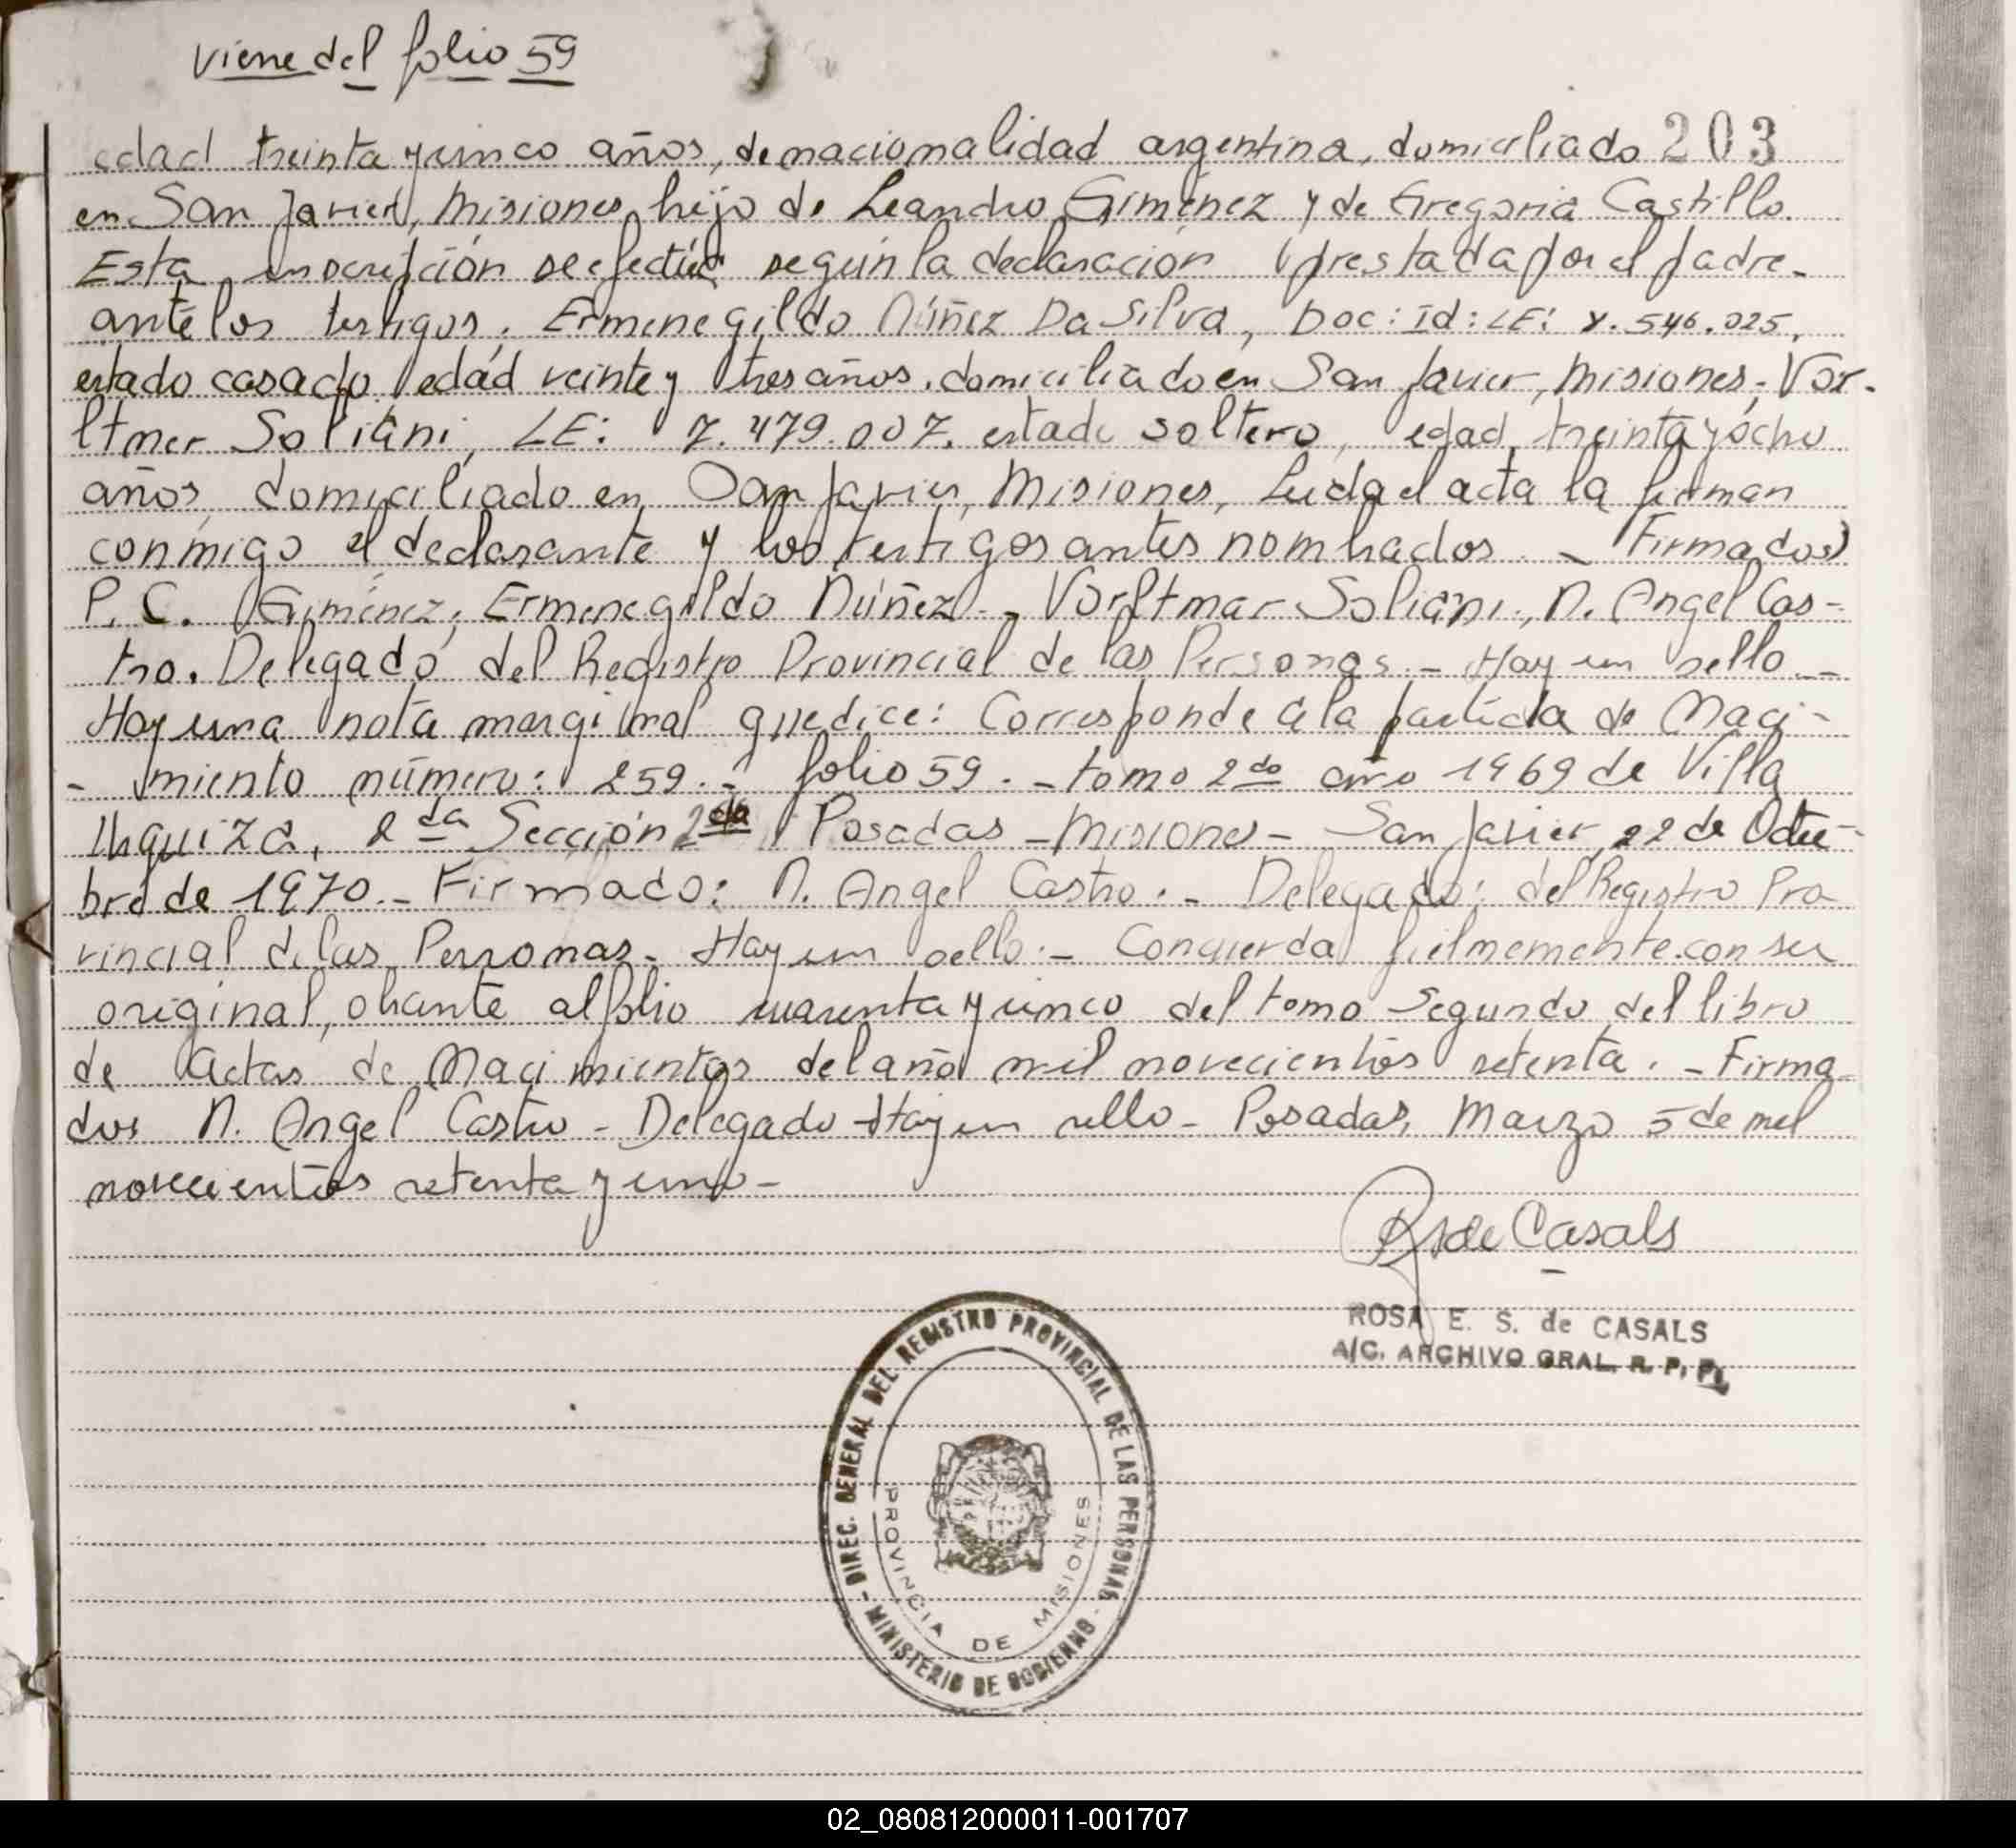 viene del folio 59
203
edad treinta y cinco años, de nacionalidad argentina, domiciliado
en San Javier, Misiones, hijo de Leandro Giménez y de Gregoria Castillo.
Esta inscripción se efectúa según la declaración prestada por el padre.
ante los testigos. Ermenegildo Núñez Da Silva, Doc: Id: LE: 546.025,
estado casado edad veinte y tres años. domiciliado en San Javier, Misiones; Vor-
ltmer Soliani, LE: 7.479.007. estado soltero, edad treinta y ocho
años, domiciliado en San Javier, Misiones, Leida el acta la firman
conmigo el declarante y los testigos antes nombrados. - Firmados)
P. C. Giménez; Ermenegildo Núñez. - Vorltmar Soliani., N. Angel Cas-
tro. Delegado del Registro Provincial de las Personas. - Hay un sello. -
Hay una nota marginal que dice: Corresponde a la partida de Naci-
- miento número: 259. - folio 59. - tomo 2do año 1969 de Villa
Urquiza, 2da Sección 2da Posadas - Misiones - San Javier, 22 de Octu-
bre de 1970. - Firmado: N. Angel Castro. - Delegado: del Registro Pro-
vincial de las Personas. Hay un sello. - Concuerda fielmemente con su
original, obrante al folio cuarenta y cinco del tomo segundo del libro
de Actas de Nacimientos del año mil novecientos setenta. - Firma-
dos N. Angel Castro - Delegado - Hay un sello - Posadas, Marzo 5 de mil
novecientos setenta y uno -
RS de Casals
ROSA E. S. de CASALS
A/C. ARCHIVO GRAL. R. P. P.
DIREC. GENERAL DEL REGISTRO PROVINCIAL DE LAS PERSONAS
- MINISTERIO DE GOBIERNO -
PROVINCIA DE MISIONES
02_080812000011-001707